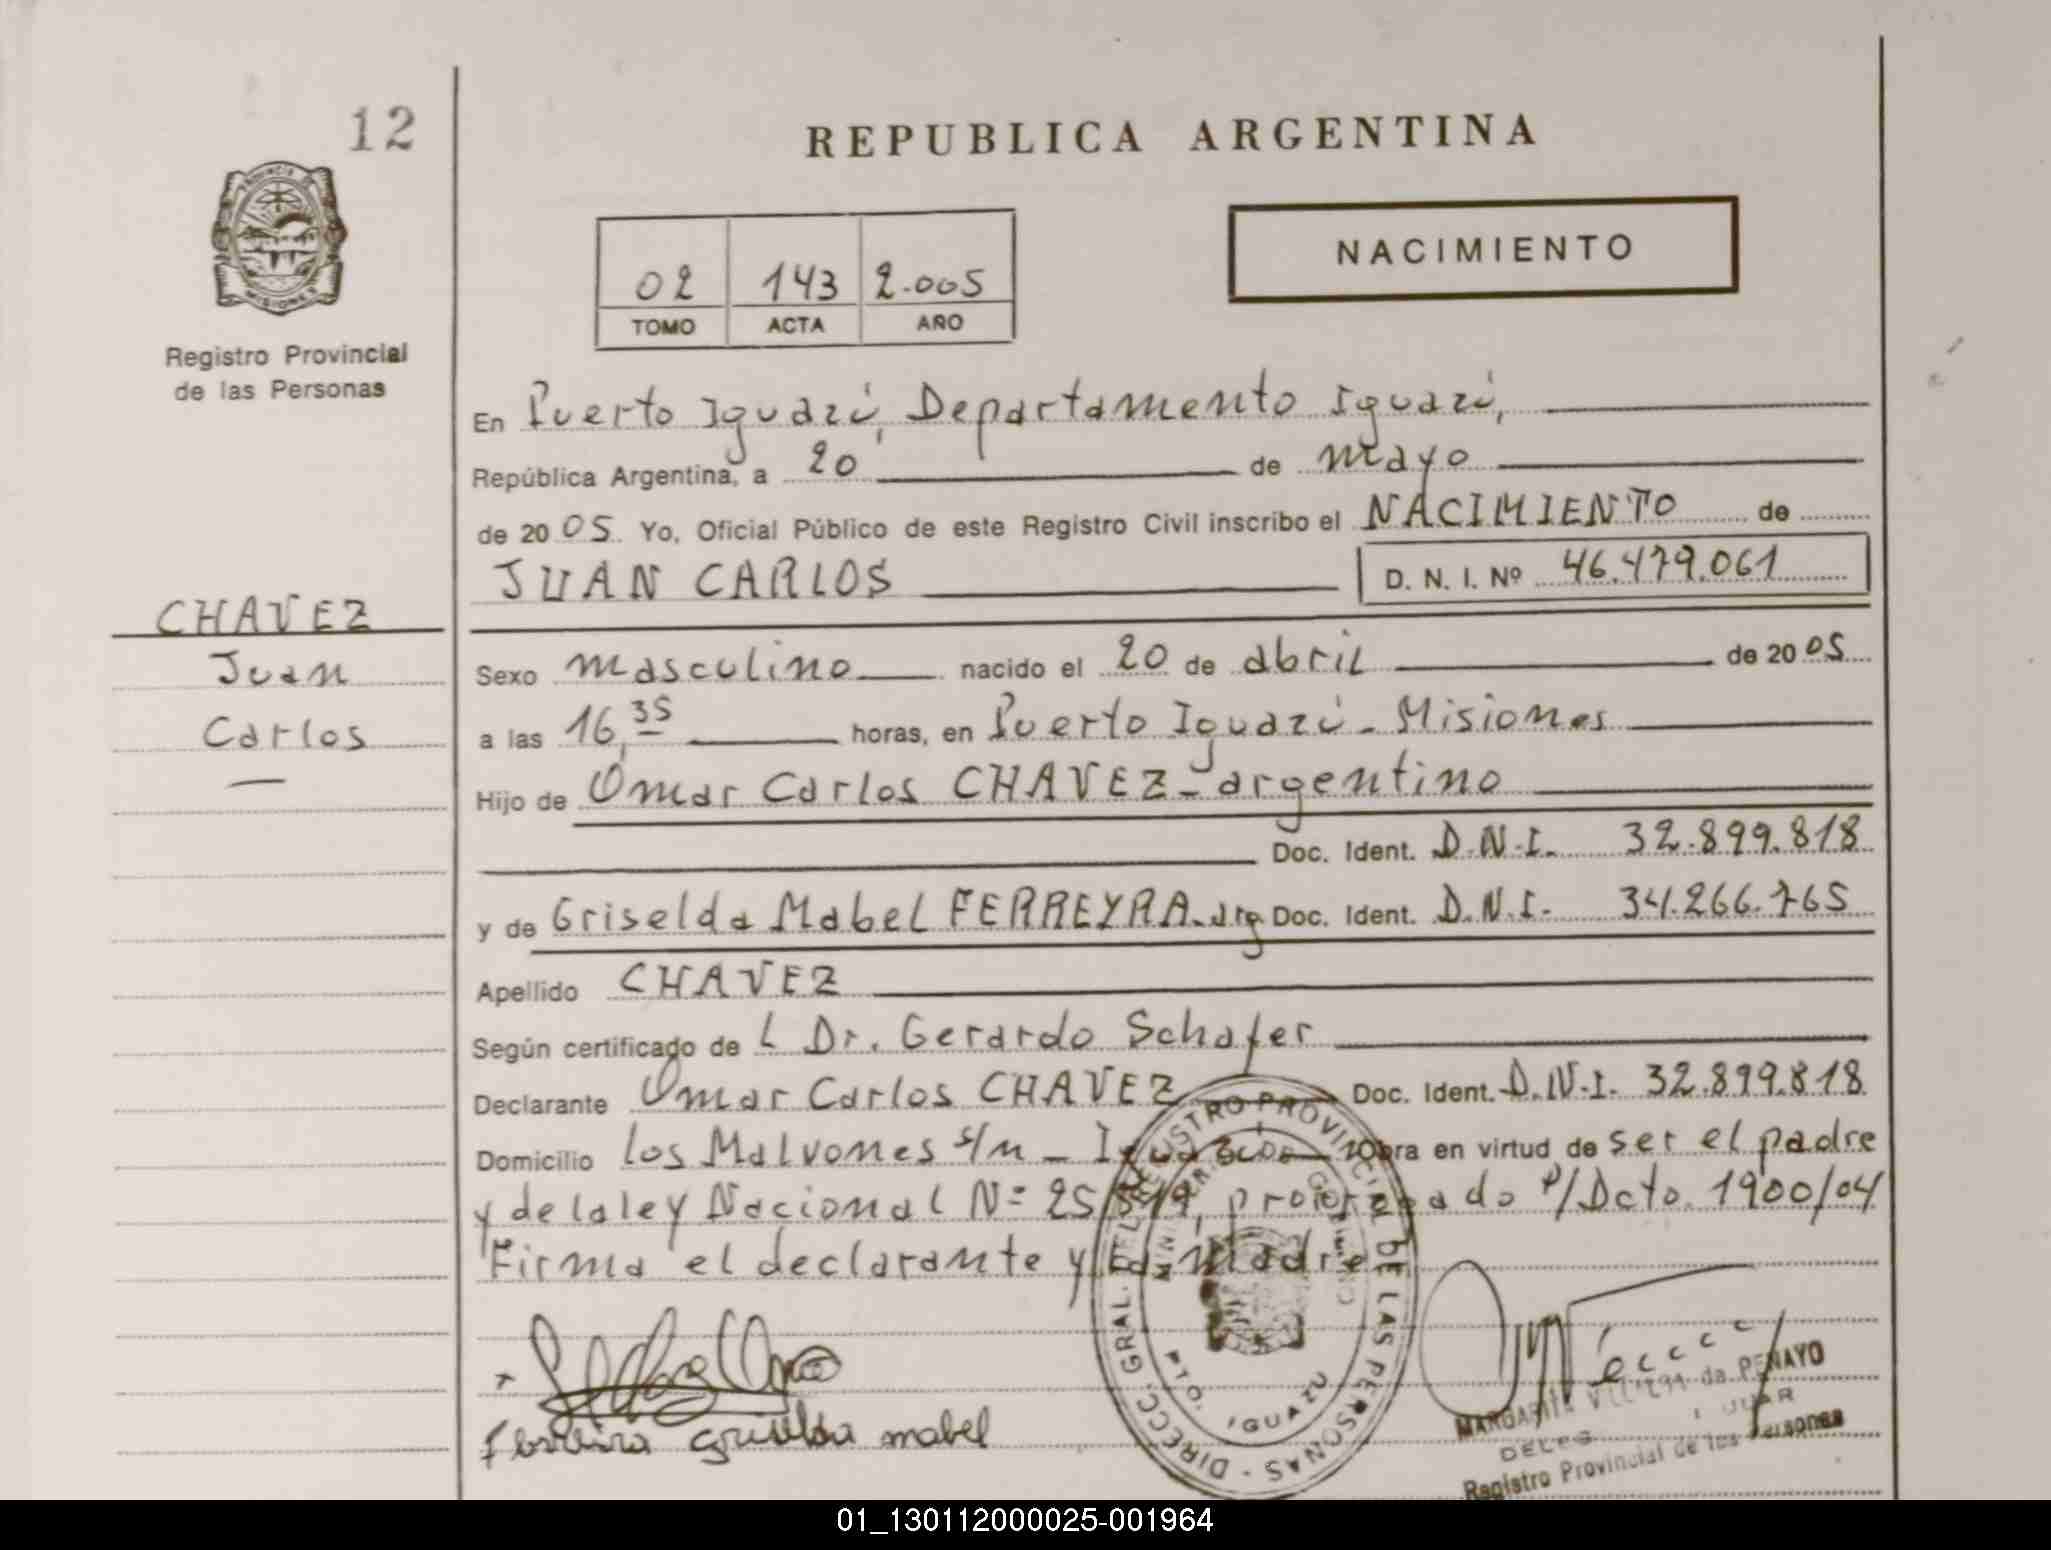 12
REPUBLICA ARGENTINA
PROVINCIA DE
MISIONES
02 143 2.005
TOMO ACTA AÑO
NACIMIENTO
Registro Provincial
de las Personas
En Puerto Iguazú, Departamento Iguazú,
República Argentina, a 20 de mayo
de 2005. Yo, Oficial Público de este Registro Civil inscribo el NACIMIENTO de
JUAN CARLOS D. N. I. Nº 46.479.061
CHAVEZ
Juan
Carlos
Sexo masculino nacido el 20 de abril de 2005
a las 16,35 horas, en Puerto Iguazú - Misiones
Hijo de Omar Carlos CHAVEZ - argentino
Doc. Ident. D.N.I. 32.899.818
y de Griselda Mabel FERREYRA - arg Doc. Ident. D.N.I. 34.266.765
Apellido CHAVEZ
Según certificado de L Dr. Gerardo Schafer
Declarante Omar Carlos CHAVEZ Doc. Ident. D.N.I. 32.899.818
Domicilio los Malvones s/n - Obra en virtud de ser el padre
y de la ley Nacional Nº P/Dcto. 1900/04
Firma el declarante y la madre
Ferreira Griselda mabel
DIRECC GRAL. DEL REGISTRO PROVINCIAL DE LAS PERSONAS
PTO. IGUAZU
MARGARITA de PENAYO
Registro Provincial de las Personas
01_130112000025-001964